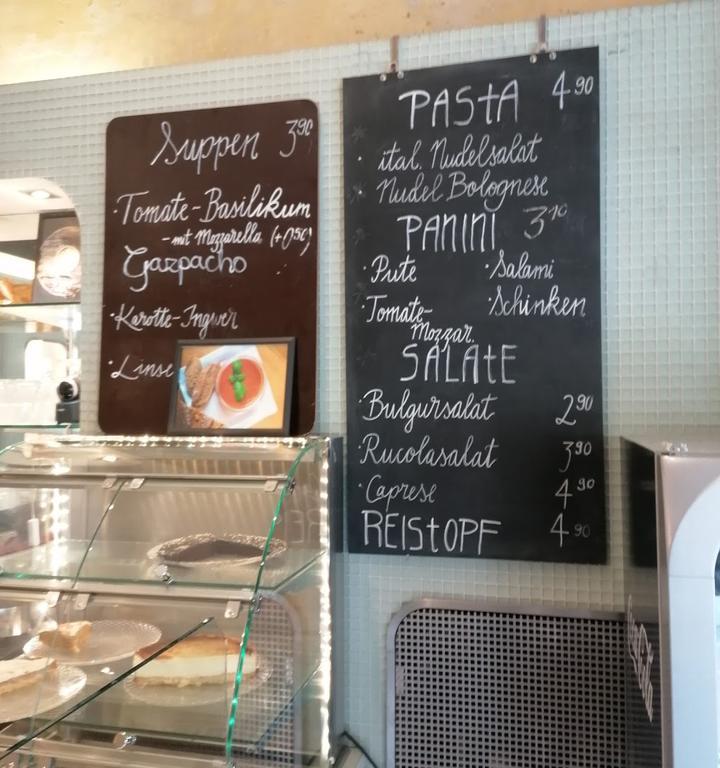 Suppen 3 90
· Tomate-Basilikum
- mit Mozzarella (+0 50)
Gazpacho
· Karotte-Ingwer
· Linse
PASTA 4 90
· ital. Nudelsalat
Nudel Bolognese
PANINI 3 10
· Pute · Salami
· Tomate- · Schinken
Mozzar.
SALATE
· Bulgursalat 2 90
· Rucolasalat 3 90
· Caprese 4 90
REISTOPF 4 90